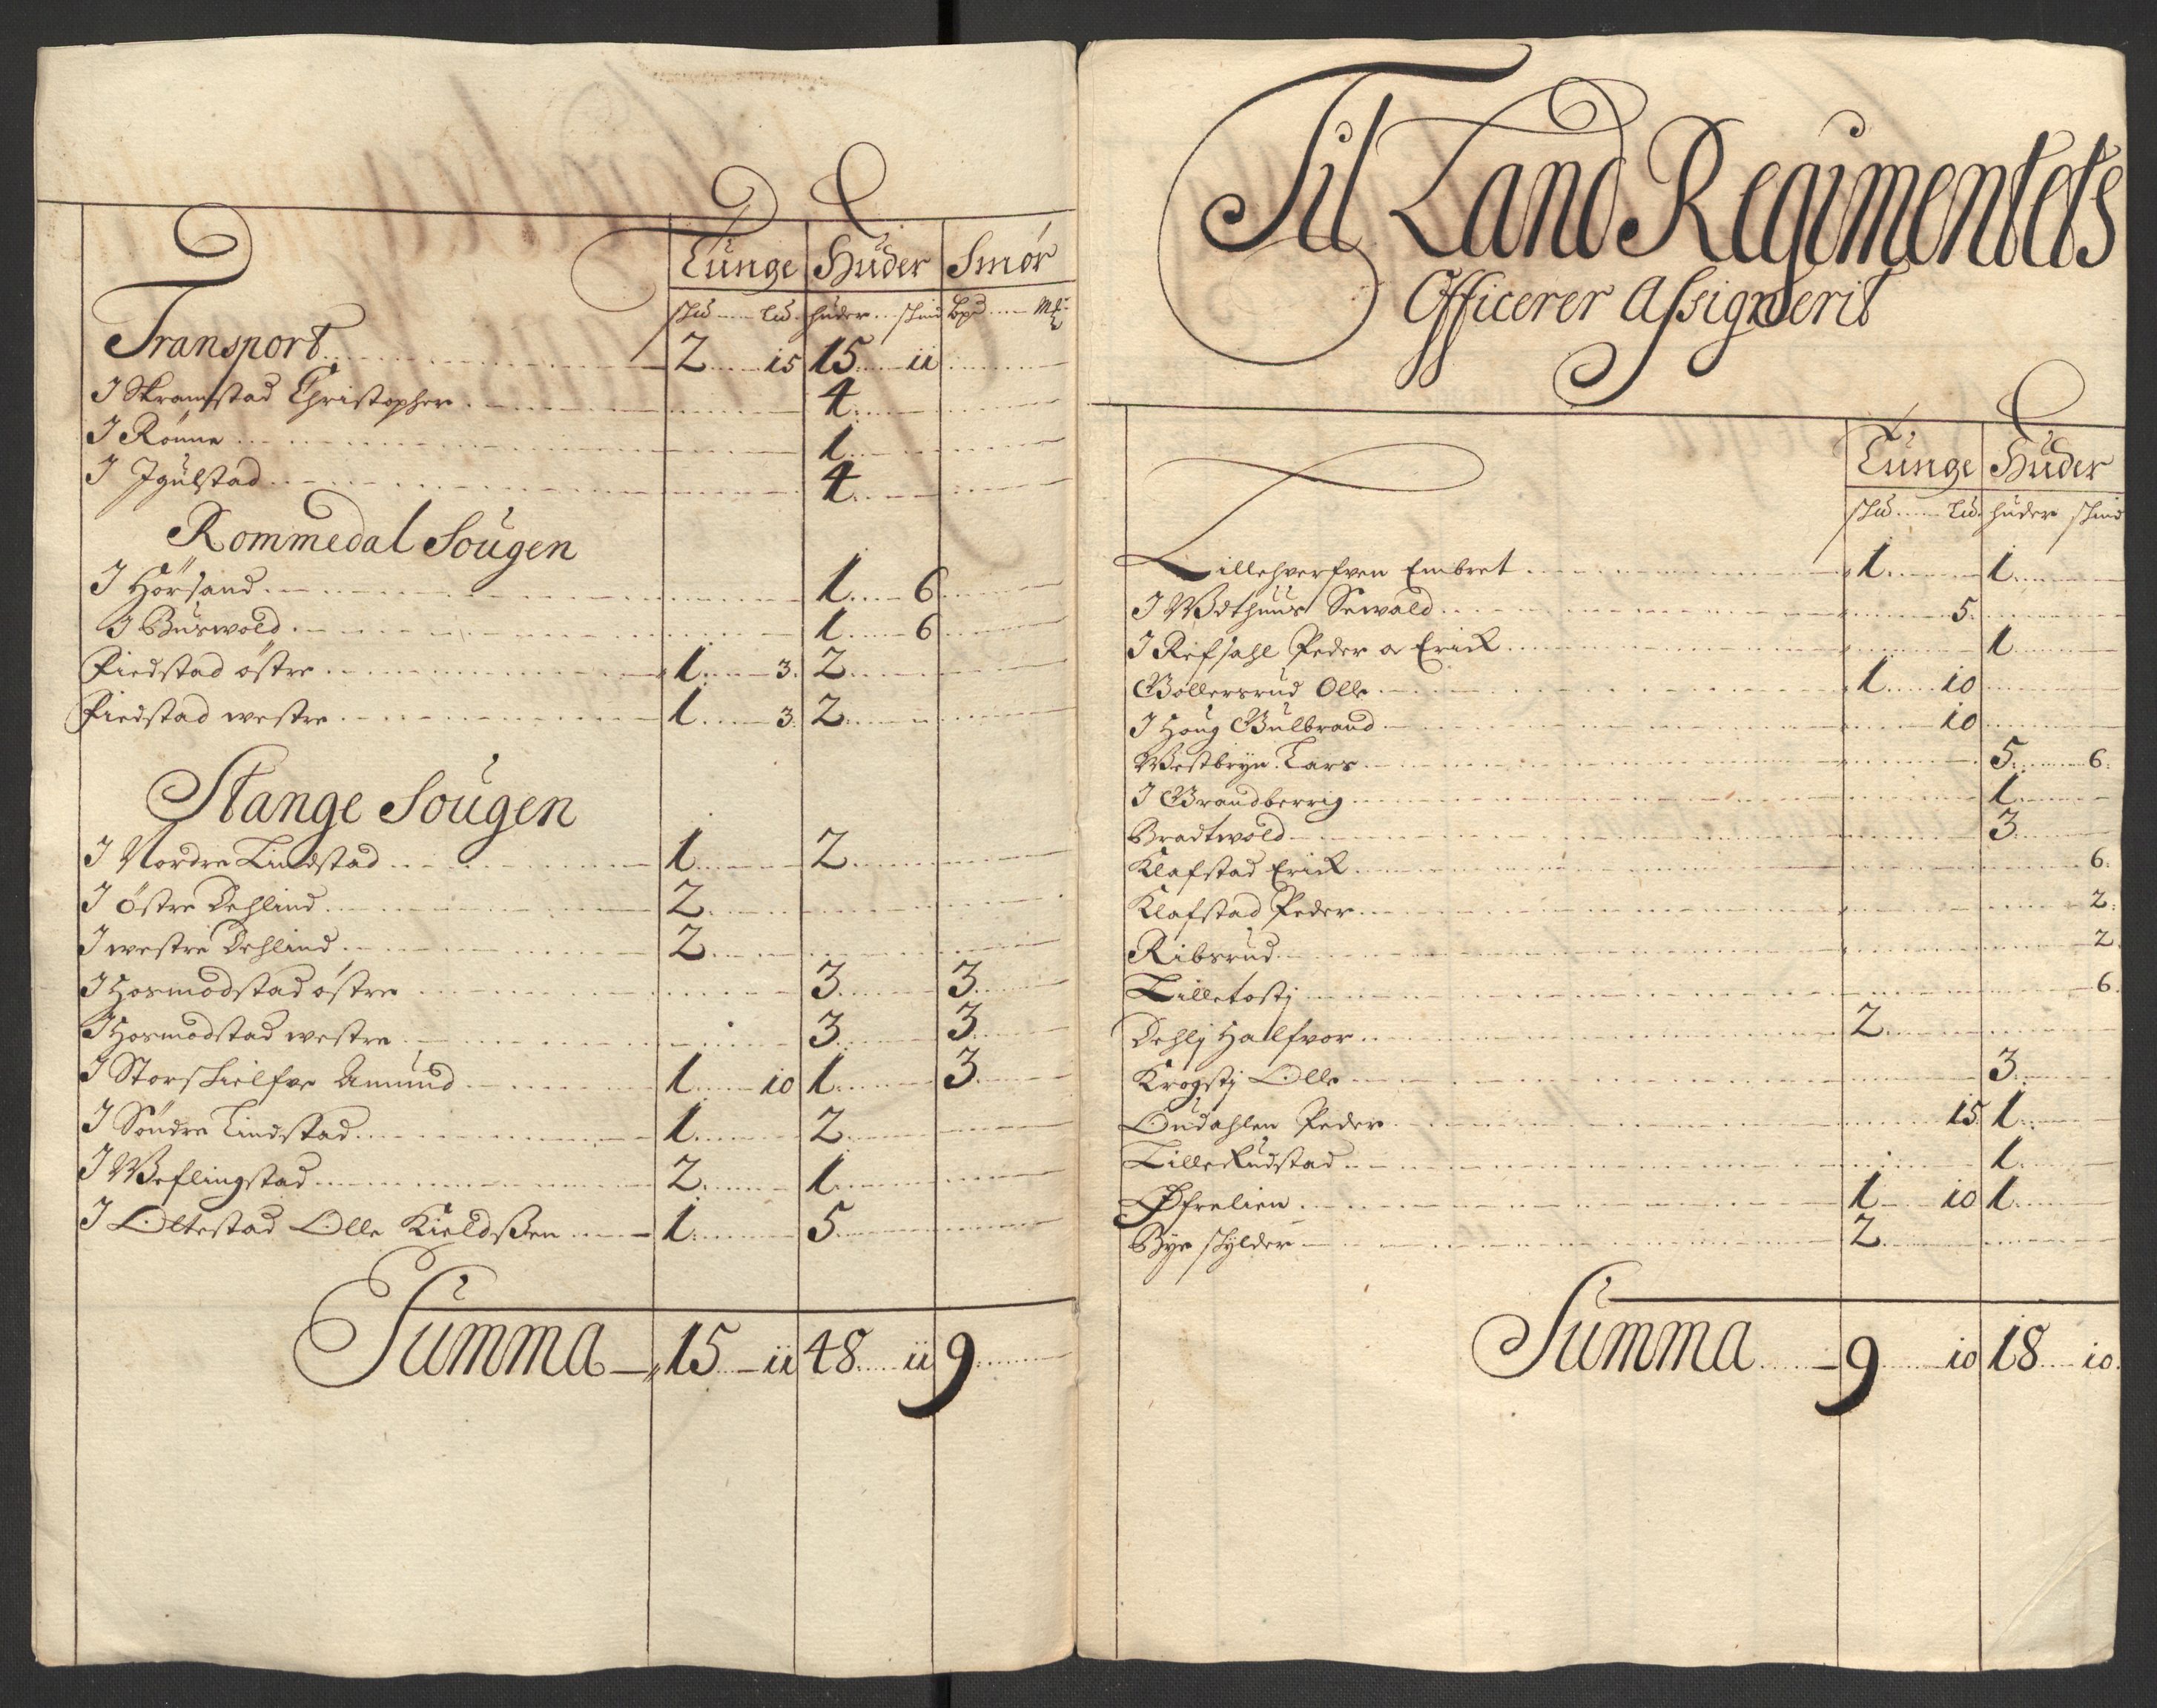 Tunge Huder Smör
skud Lid. huder skind bpd Mk
Transport 2 15 15 ii
J Skramstad Christopher 4
J Rönne 1
J Jgulstad 4
Rommedal Sougen
J Hörsand 1 6
J Buswold 1 6
Fiedstad östre 1 3. 2
Fiedstad westre 1 3. 2
Stange Sougen
J Nordre Lindstad 1 2
J östre Dehlind 2
J westre Dehlind 2
J Hosmodstad östre 3 3
J Hosmodstad westre 3 3
J Storskielfve Amund 1 10 1 3
J Söndre Lindstad 1 2
J Weflingstad 2 1
J Oltestad Olle Kieldßen 1 5
Summa 15 ii 48 ii 9
Til Land Regimentets
Officerer Assignerit
Tunge Huder
skud Lid. huder skind
Lillehverfven Embret 1 1
J Wdthuus Sewald 5.
J Refsahl Peder o Erick 1
Bollersrud Olle 1 10
J Houg Gulbrand 10
Westbryn Lars 5 6.
J Brandberrig 1
Bradtwold 3
Klafstad Erick 6.
Klafstad Peder 2.
Ribsrud 2.
Lilletostj 6.
Dehlj Halfvor 2
Krogstj Olle 3
Oudahlen Peder 15. 1
Lille Rudstad 1
Øfrelien 1 10 1
Bye skylder 2
Summa 9 io 18 io.